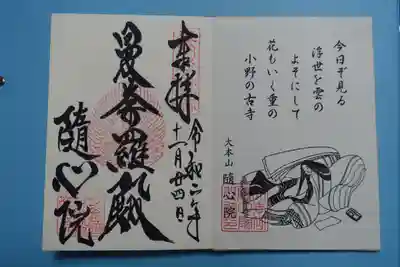 今日ぞ見る
浮世を雲の
よそにして
花もいく重の
小野の古寺
大本山
隨心院
奉拝
令和二年
十一月廿四日
曼荼羅殿
隨心院